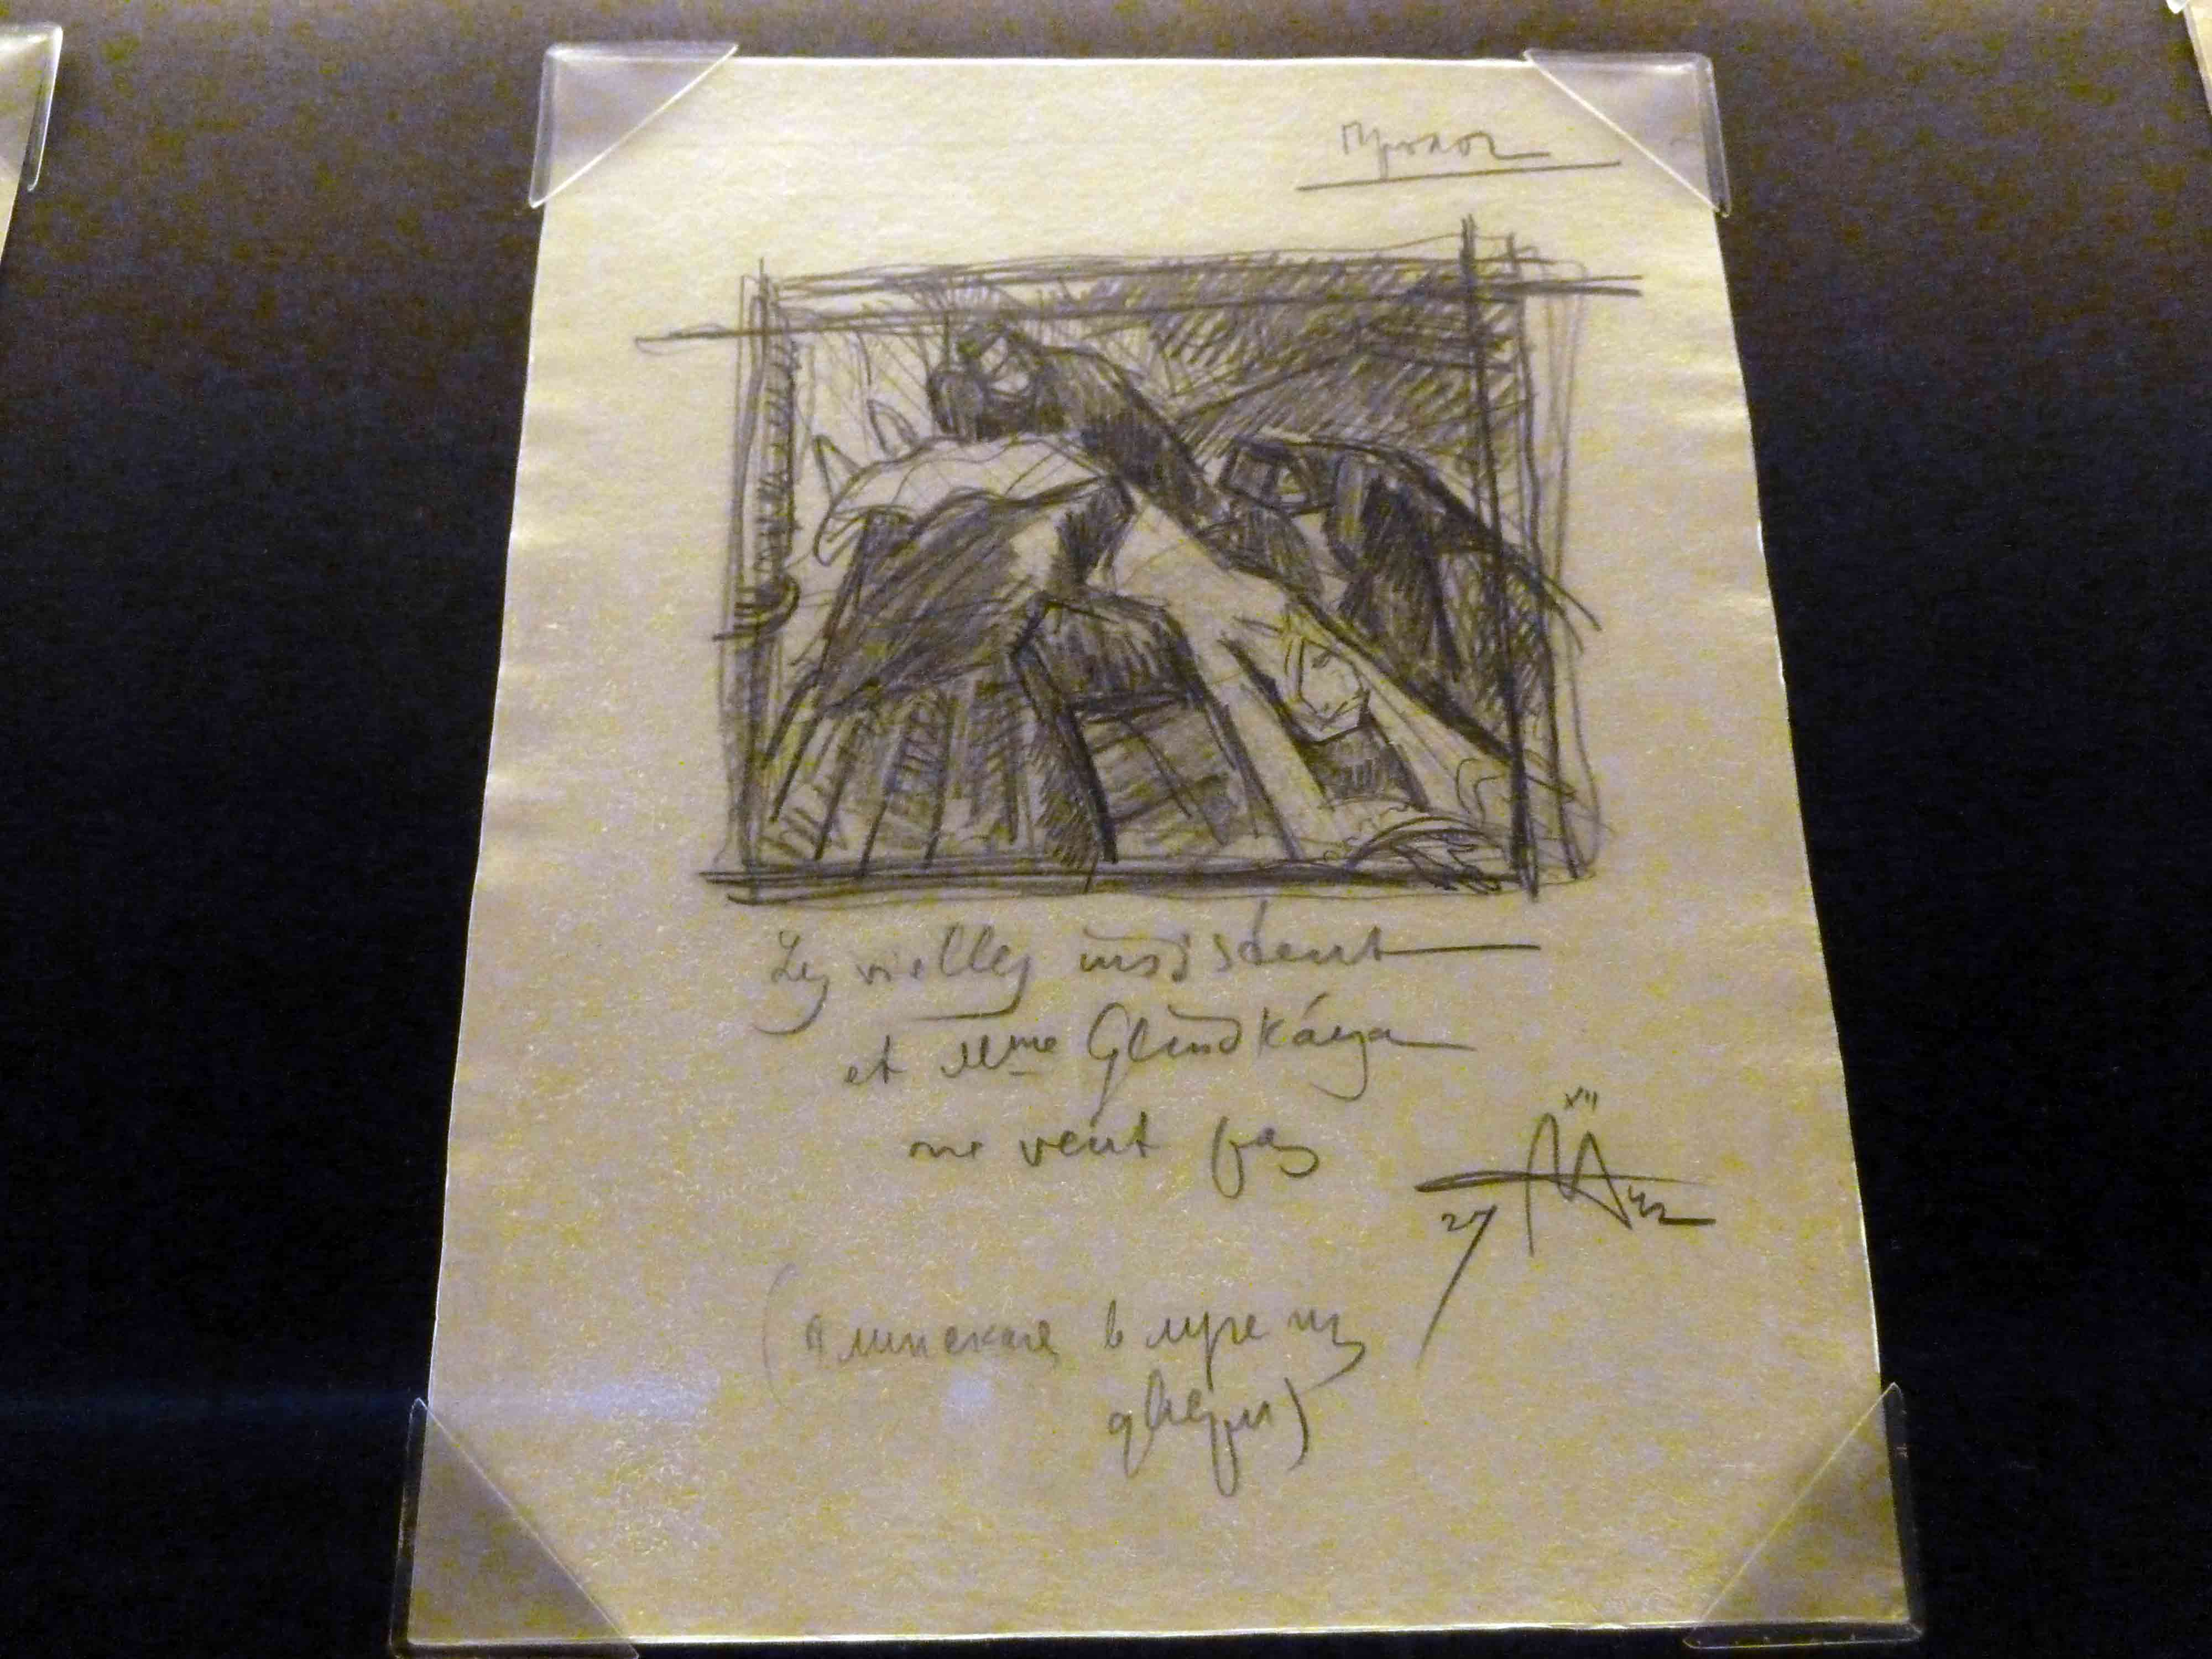 Пролог
Les vielles insistent
et Mme Glinskáya
ne veut pas
XII
27
(Глинская в луре из
двери)